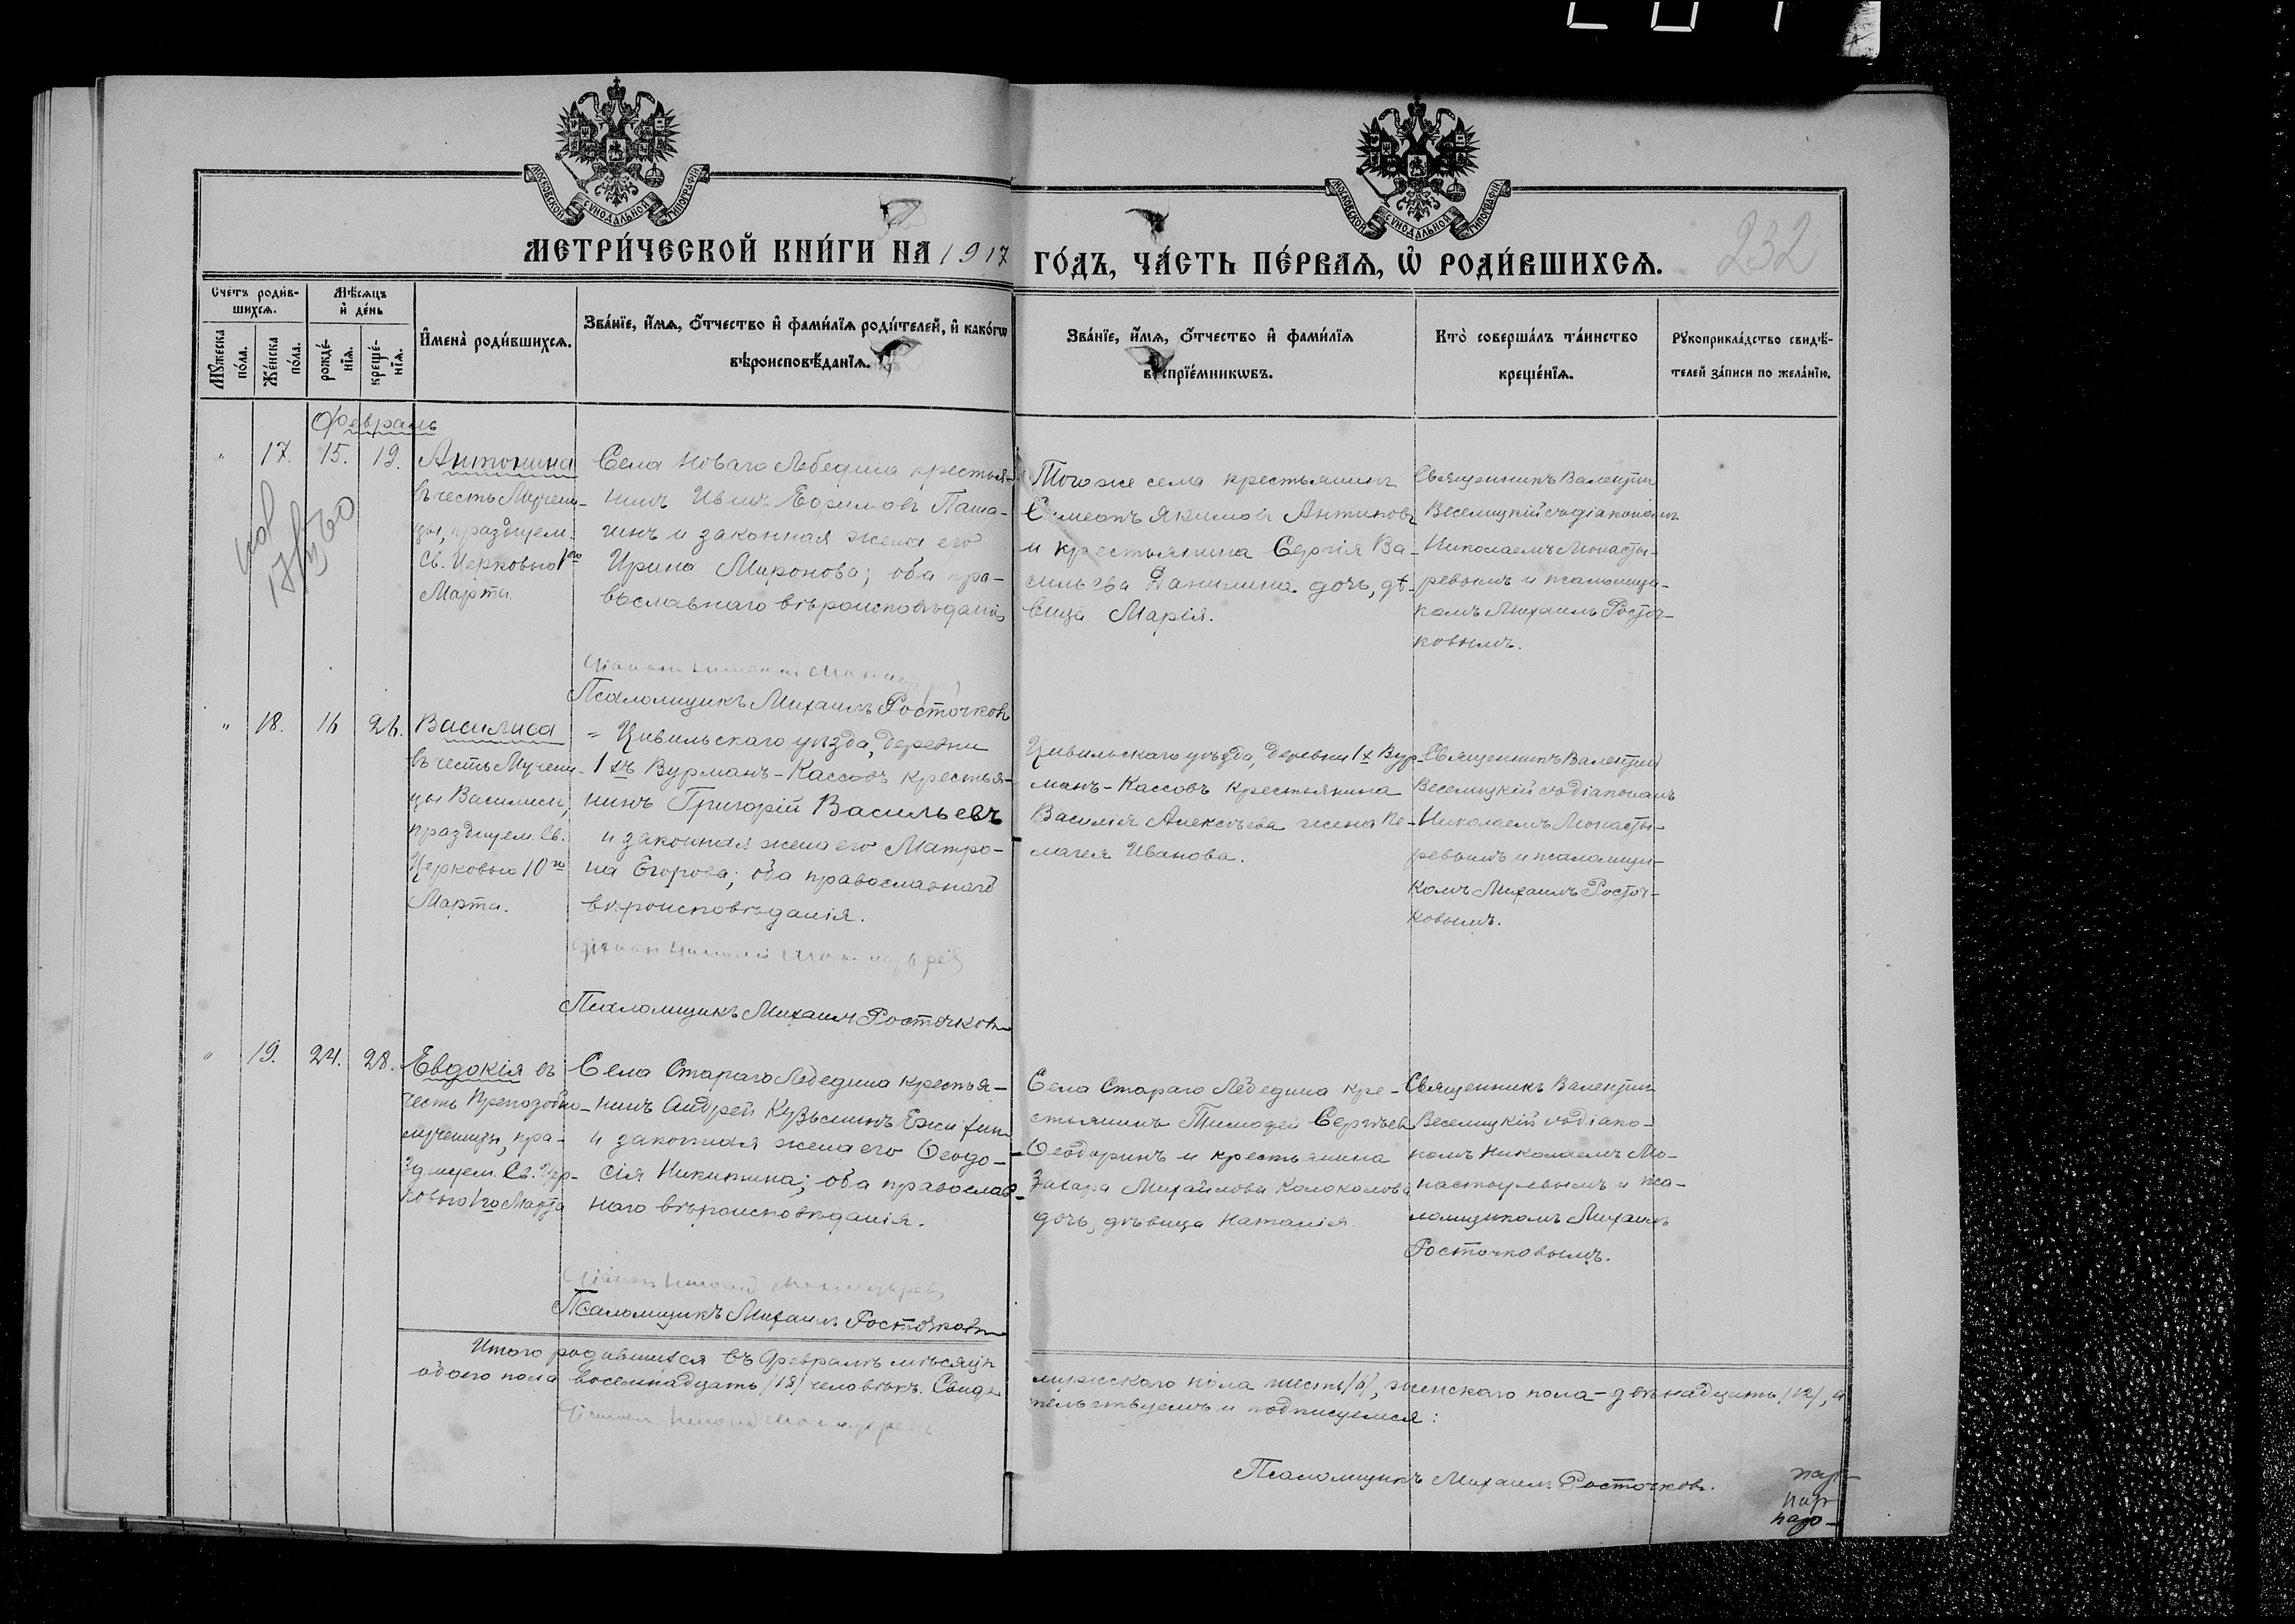 МОСКОВСКОЙ СУНОДАЛЬНОЙ ТИПОГРАФІИ
МОСКОВСКОЙ СУНОДАЛЬНОЙ ТИПОГРАФІИ
МЕТРИ́ЧЕСКОЙ КНИ́ГИ НА 1917
ГО́ДЪ, ЧА́СТЬ ПЕ́РВАЯ, Ѡ РОДИ́ВШИХСЯ.
232
Сче́тъ роди́в-
шихсѧ.
Мꙋ́жеска
по́ла.
Же́нска
по́ла.
Мѣ́сѧцъ
и҆ де́нь
рожде́-
нїѧ.
креще́-
нїѧ.
И҆мена̀ роди́вшихсѧ.
Зва́нїе, и҆́мѧ, ѻ҆́тчество и҆ фами́лїѧ роди́телей, и҆ како́гѡ
вѣроисповѣ́данїѧ.
Зва́нїе, и҆́мѧ, ѻ҆́тчество и҆ фами́лїѧ
воспрїе́мникѡвъ.
Кто̀ соверша́лъ та́инство
креще́нїѧ.
Рꙋкоприкла́дство свидѣ́-
телей за́писи по жела́нїю.
Февраль
" 17. 15. 19.
Антонина
въ честь Мучени-
цы, празднуем.
Св. Церковью 1го
Марта.
Села Новаго Лебедина крестья-
нинъ Иванъ Ефимовъ Паша-
гинъ и законная жена его
Ирина Миронова; оба пра-
вославнаго вѣроисповѣданія
Діаконъ Николай Монастыревъ
Псаломщикъ Михаилъ Росточковъ
Того же села крестьянинъ
Симеонъ Якимовъ Антиповъ
и крестьянина Сергія Ва-
сильева Данилина дочь, дѣ-
вица Марія.
Священникъ Валентин
Веселицкій съ діакономъ
Николаемъ Монасты-
ревымъ и псаломщи-
комъ Михаилъ Росточ-
ковымъ.
" 18. 16 26.
Василиса
въ честь Мучени-
цы Василисы,
празднуем. Св.
Церковью 10го
Марта.
= Цивильскаго уѣзда, деревни
1хъ Вурманъ-Кассовъ крестья-
нинъ Григорій Васильевъ
и законная жена его Матро-
на Егорова; оба православнаго
вѣроисповѣданія.
Діаконъ Николай Монастыревъ
Псаломщикъ Михаилъ Росточковъ
Цивильскаго уѣзда, деревни 1х Вур-
манъ-Кассовъ крестьянина
Василія Алексѣева жена Пе-
лагея Иванова.
Священникъ Валентий
Веселицкій съ діакономъ
Николаемъ Монасты-
ревымъ и псаломщи-
комъ Михаилъ Росточ-
ковымъ.
" 19. 24. 28.
Евдокія въ
честь Преподобно-
мученицы, пра-
зднуем. Св. Цер-
ковью 1го Марта
Села Стараго Лебедина крестья-
нинъ Андрей Кузьминъ
и законная жена его Ѳеодо-
сія Никитина; оба православ-
наго вѣроисповѣданія.
Діаконъ Николай Монастыревъ
Псаломщикъ Михаилъ Росточковъ
Села Стараго Лебедина кре-
стьянинъ Тимофей Сергѣевъ
Ѳеодоринъ и крестьянина
Захара Михайлова Колоколова
дочь, дѣвица Наталія.
Священникъ Валентин
Веселицкій съ діако-
номъ Николаемъ Мо-
настыревымъ и пса-
ломщикомъ Михаилъ
Росточковымъ.
Итого родившихся въ Февралѣ мѣсяцѣ
мужескаго пола шесть /6/, женскаго пола - двѣнадцать /12/, а
обоего пола восемнадцать /18/ человѣкъ. Свидѣ
тельствуемъ и подписуемся:
Діаконъ Николай Монастыревъ
Псаломщикъ Михаилъ Росточковъ.